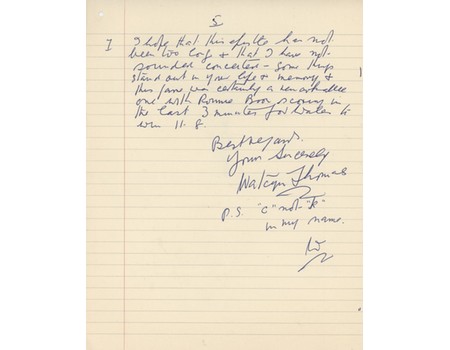 5
I I hope that this epistle has not
been too long & that I have not
sounded conceited - some things
stand out in your life & memory &
this game was certainly a remarkable
one with Ronnie Boon scoring in
the last 3 minutes for Wales to
win 11.8.
Best regards.
Yours Sincerely
Watcyn Thomas
P.S. "c" not "k"
in my name.